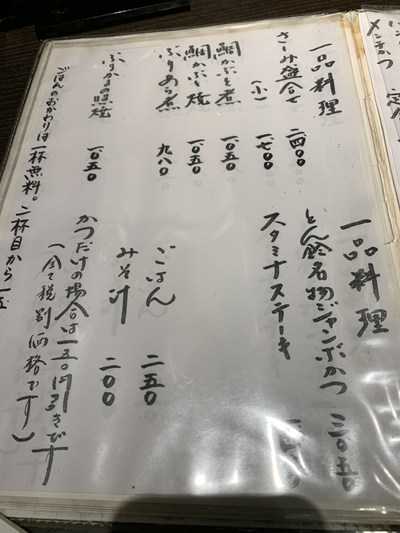 一品料理
さしみ盛合せ 二四〇〇
(小) 一七〇〇
鯛かぶと煮 一〇五〇
鯛かぶと焼 一〇五〇
ぶりあら煮 九八〇
ぶりかまの照焼 一〇五〇
ごはんのおかわりは一杯無料。二杯目から一五
一品料理
とん鈴名物ジャンボかつ 三〇五〇
スタミナステーキ
ごはん 二五〇
みそ汁 二〇〇
かつだけの場合は一五〇円引きです
(全て税別価格です)